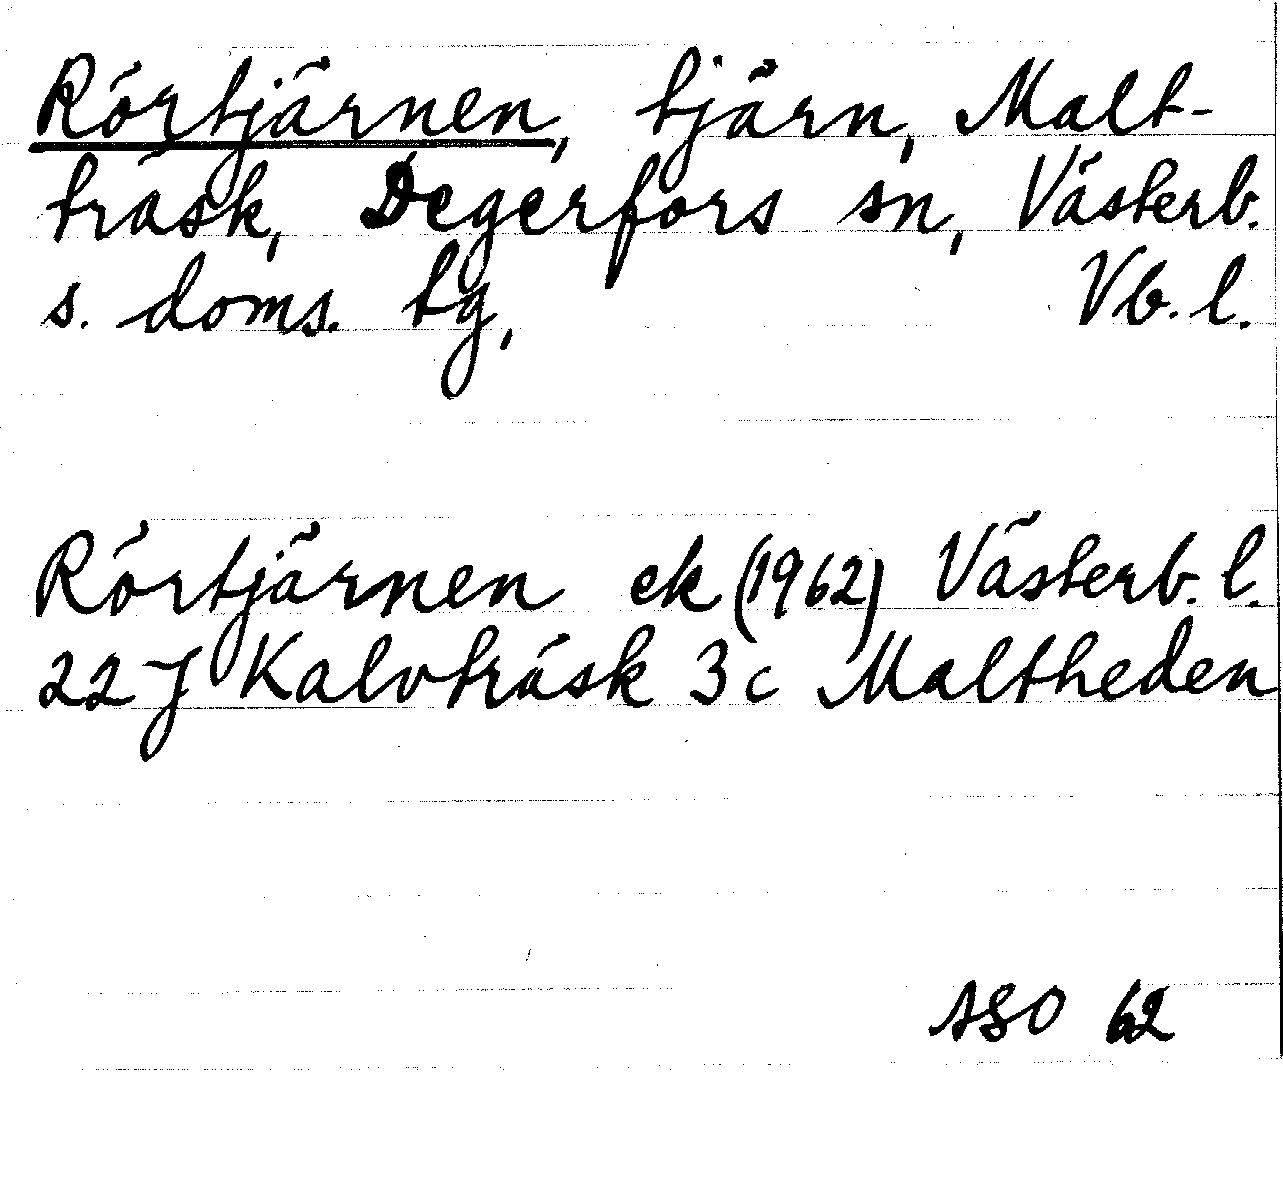 Rörtjärnen, tjärn, Malt-
träsk, Degerfors sn, Västerb.
s. doms. tg, Vb. l.
Rörtjärnen ek (1962) Västerb. l.
22 J Kalvträsk 3 c Maltheden
ASO 62